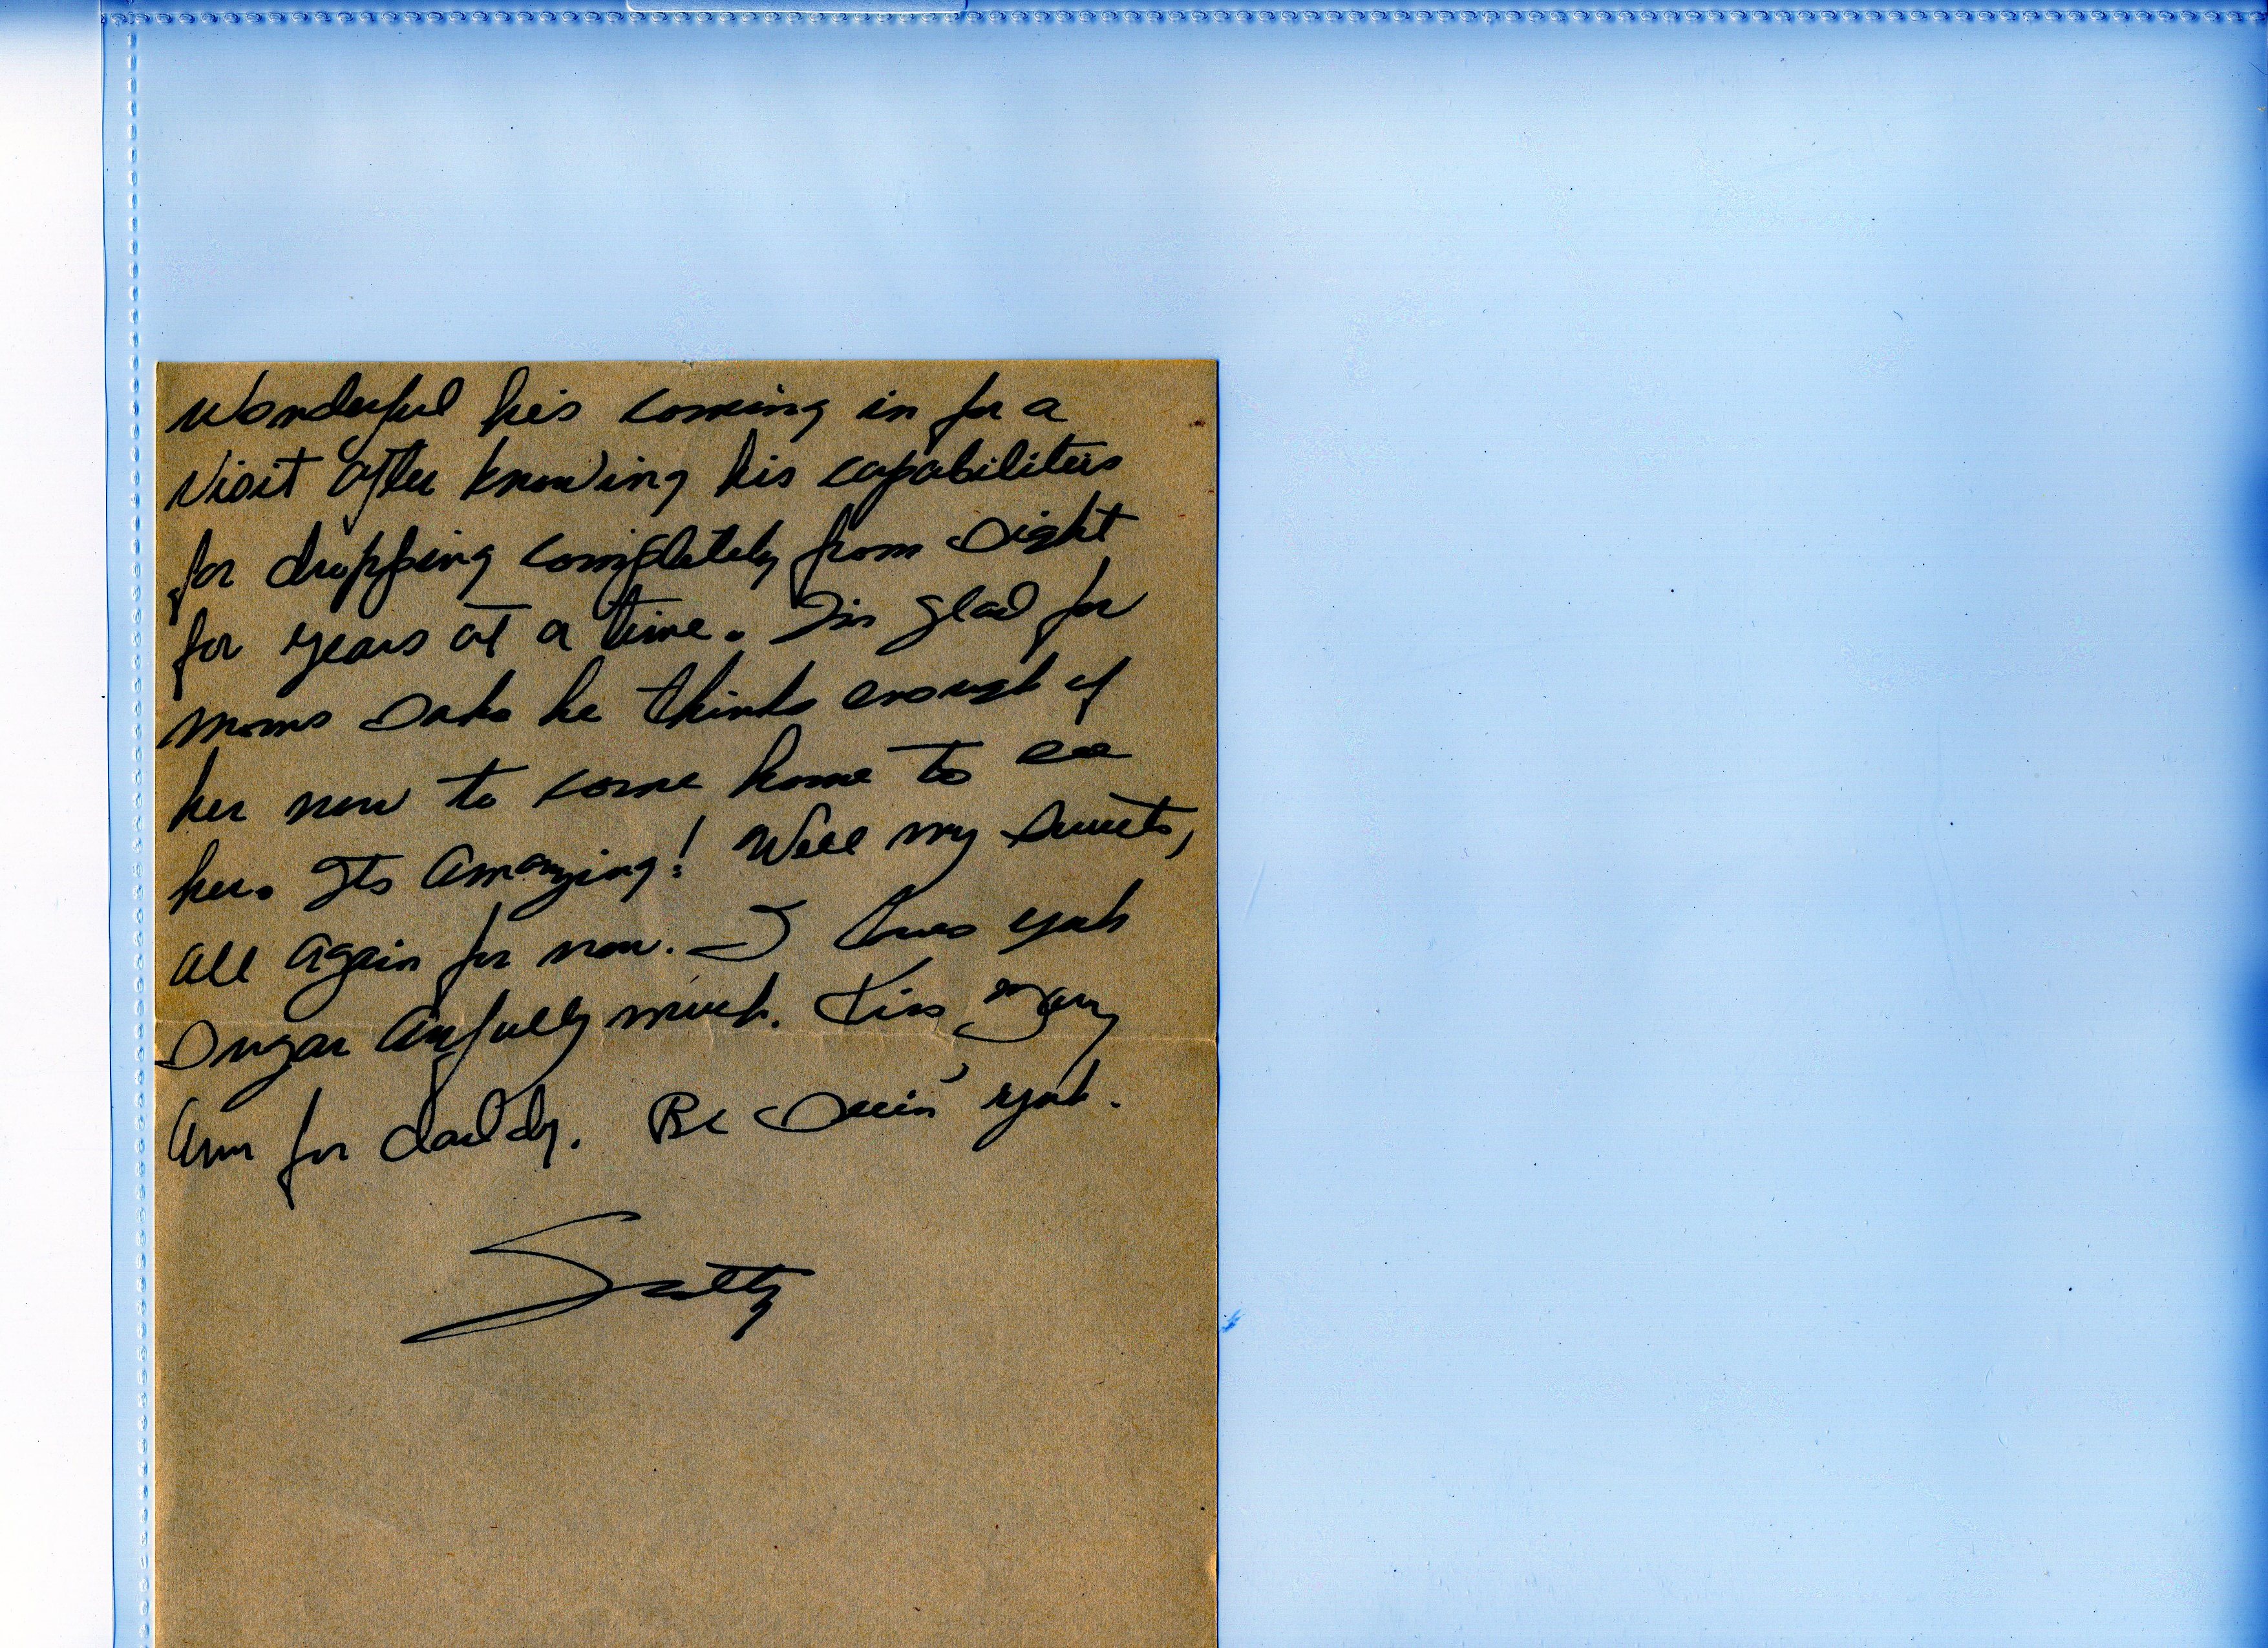 Wonderful his coming in for a
visit after knowing his capabilities
for dropping completely from sight
for years at a time. I'm glad for
moms sake he thinks enough of
her now to come home to see
her. Its amazing! Well my sweets,
all again for now. I loves yah
sugar awfully much. Kiss Mary
Ann for daddy. Be seein' yah.
Scotty